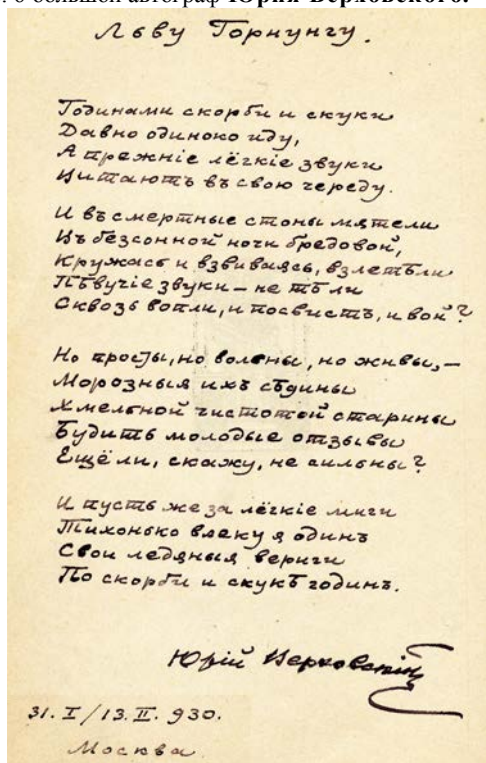 большей автограф Юрия Верховского.
Льву Горнунгу.
Годинами скорби и скуки
Давно одиноко иду,
А прежніе лёгкіе звуки
Витаютъ въ свою череду.
И въ смертные стоны мятели
Въ безсонной ночи бредовой,
Кружась и взвиваясь, взлетѣли
Пѣвучіе звуки – не тѣ ли
Сквозь вопли, и посвистъ, и вой?
Но просты, но вольны, но живы, –
Морозныя ихъ сѣдины
Хмельной чистотой старины
Будить молодые отзывы
Ещё ли, скажу, не сильны?
И пусть же за лёгкіе миги
Тихонько влеку я одинъ
Свои ледяныя вериги
По скорби и скукѣ годинъ.
Юрій Верховскій
31. I / 13. II. 930.
Москва.